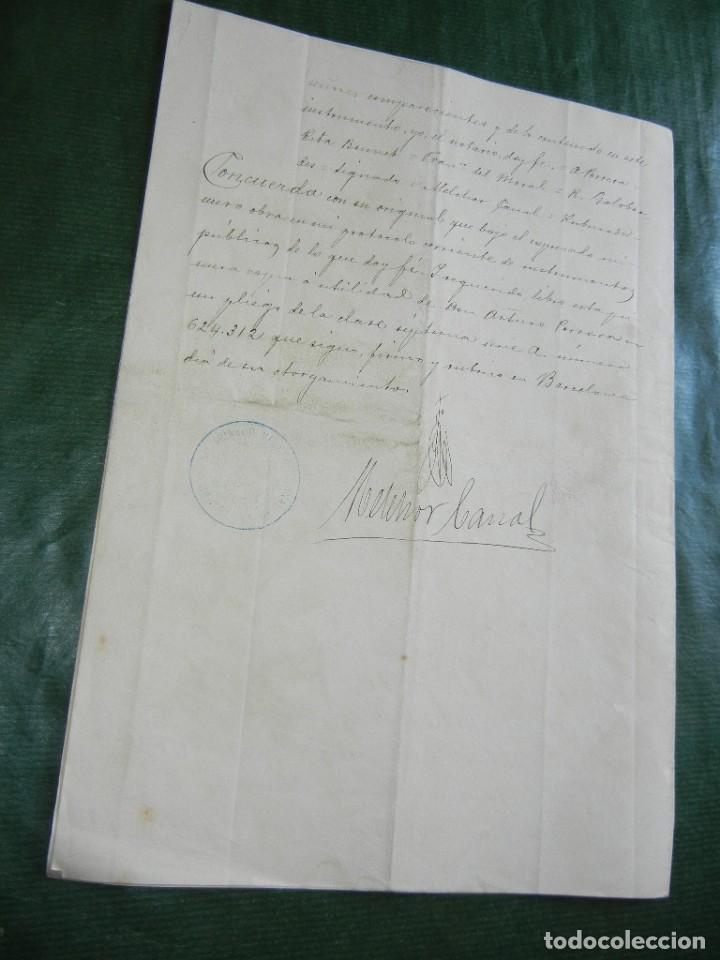 comparecientes y de lo contenido en este
instrumento, yo el notario, doy fe. =
Rita Bonnet = Franco del Moral = R.
des = Signado = Melchor Canal = Rubricado.
Concuerda con su original que bajo el expresado nú
mero obra en mi protocolo corriente de instrumentos
públicos, de lo que doy fé. Y requerido libro esta pri
mera copia á utilidad de Don Arturo en
un pliego de la clase séptima serie A. número
624.312 que signo, firmo y rubrico en Barcelona
día de su otorgamiento.
Melchor Canal
todocoleccion